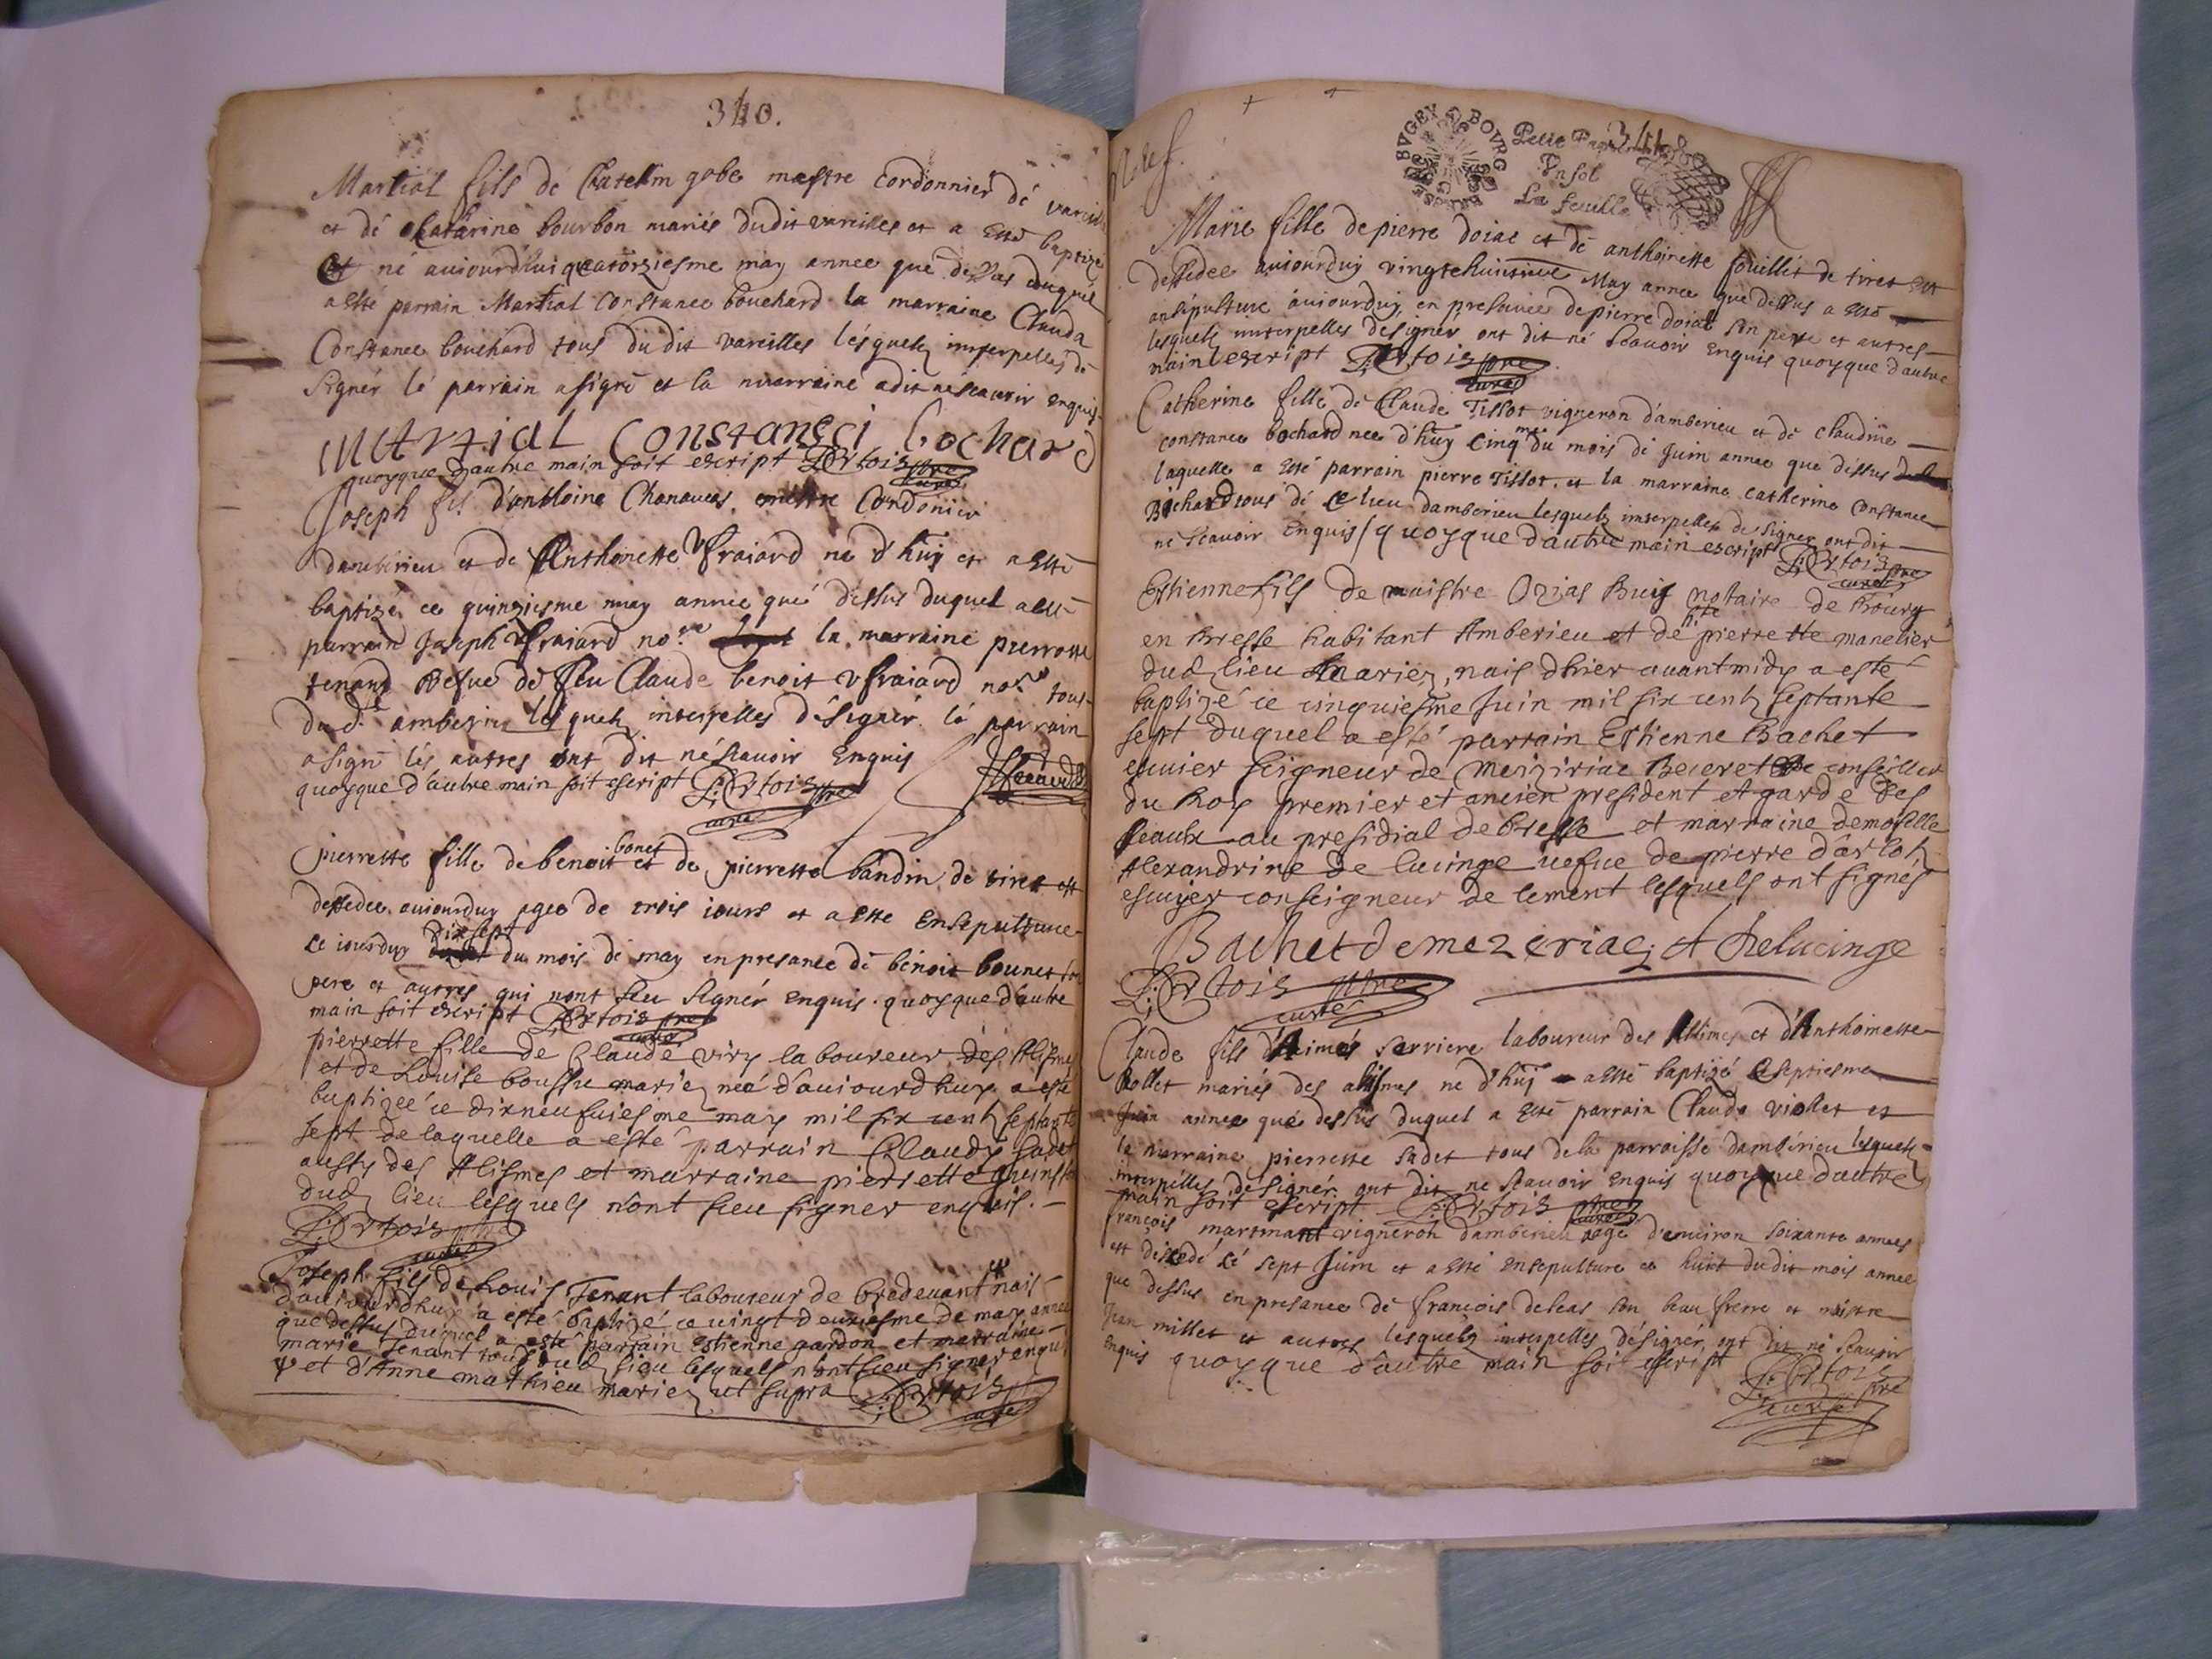 340.
Martial fils dé Chatelim gobe maistre Cordonnier dé vareill
et dé Catarine bourbon mariés dudit vareilles et a esté baptize
né auiourdhui quatorziesme may annee que dessus duquel
a esté parrain Martial Constance bouchard la marraine Clauda
Constance bouchard tous du dit vareilles lésquelz interpellés dé
signér lé parrain a signé et la marraine a dit né scauoir enquis
MARTIAL Constance Bochard
quoyque d'autre main soit escript Ertois ptre curé
Joseph fils d'anthoine Chanaues maistre Cordonier
damberieu et de Anthonette né d'huy et a esté
baptizé ce quinziesme may annee qué dessus duquel a esté
parrain Joseph no.re la marraine pierrette
tenand vefue dé feu Claude benoit no.re tous
du d. amberieu lésquelz interpelles désignér lé parrain
a signé lés autres ont dit né scauoir enquis
quoyque d'autre main soit escript Ertois ptre
curé
pierrette fille de benoit bonet et de pierrette bandin de tiret est
dessedee auiourduy agee de trois iours et a esté ensepulturee
ce iourduy dixsept du mois dé may en presance dé bénoit bounet son
pere et autres qui nont sceu signér enquis quoyque d'autre
main soit escript Ertois ptre
curé
pierrette fille de Claude viry laboureur dés Alismes
et de Louise boussu mariez néé d'auiourdhuy a esté
baptizeé ce dixneufuiesme may mil six centz septante
sept de laquelle a esté parrain Claudy Sadet
aussy des Alismes et marraine pierrette
dud. lieu lesquels n'ont sceu signer enquis.
Ertois ptre
curé
Joseph fils de Louis Tenant laboureur de bredeuant nais
d'auiourdhuy a esté baptizé ce vingt deuxiesme de may annee
que dessus duquel a esté parrain Estienne gardon et marraine
marie Tenant tous dud. lieu lesquels n'ont sceu signer enquis
et d'Anne mathieu mariez ut supra Ertois ptre
curé
BVGEY BOVRG
Petit Papier
Vn sol
La feuille
Marie fille de pierre doiat et dé anthoinette fouillét de tiret est
dessedee auiourduy vingtehuitieme May annee que dessus a esté
ensépulture auiourduy en presance de pierre doiat son pere et autres
lesquelz interpelles désignér ont dit né scauoir enquis quoyque d'autre
main escript Ertois ptre
curé
Catherine fille dé Claude Tissot vigneron d'amberieu et dé claudine
constance bochard nee d'huy Cinq.me du mois dé Juin annee que dessus
laquelle a esté parrain pierre Tissot et la marraine catherine Constance
Bochard tous dé ce lieu damberieu lesquelz interpelles de signer ont dit
ne scauoir enquis quoyque d'autre main escript Ertois ptre
curé
Estienne fils de maistre Ozias Buis notaire de Bourg
en Bresse habitant Amberieu et de h.te pierrette manelier
dud. lieu mariez, nais dhier auant midy a esté
baptizé ce cinquiesme Juin mil six centz septante
sept duquel a esté parrain Estienne Bachet
escuier seigneur de Meiziriac conseiller
du Roy premier et ancien president et garde des
seaux au presidial de bresse et marraine demoyselle
Alexandrine de lucinge uefue de pierre d'arloz
escuyer conseigneur de lement lesquels ont signés
Bachet de mezeriac A Delucinge
Ertois ptre
curé
Claude fils d'Aimé Serriere laboureur des Allimes et d'Anthoinette
Rollet mariés des alismes né d'huy a esté baptizé ce septiesme
Juin annee qué dessus duquel a esté parrain Claude violet et
la marraine pierrette Sadet tous de la parroisse dambérieu lesquelz
interpéllés désignér ont dit ne scauoir enquis quoyque d'autre
main soit escript Ertois ptre
curé
françois martmant vigneron damberieu aagé d'enuiron soixante annees
est decedé lé sept Juin et a esté ensepulture ce huit dudit mois annee
que dessus en presance dé françois deleas son beau frerre et maistre
Jean millet et autres lesquelz interpelles désignér ont dit né scauoir
enquis quoyque d'autre main soit escript Ertois
ptre
curé